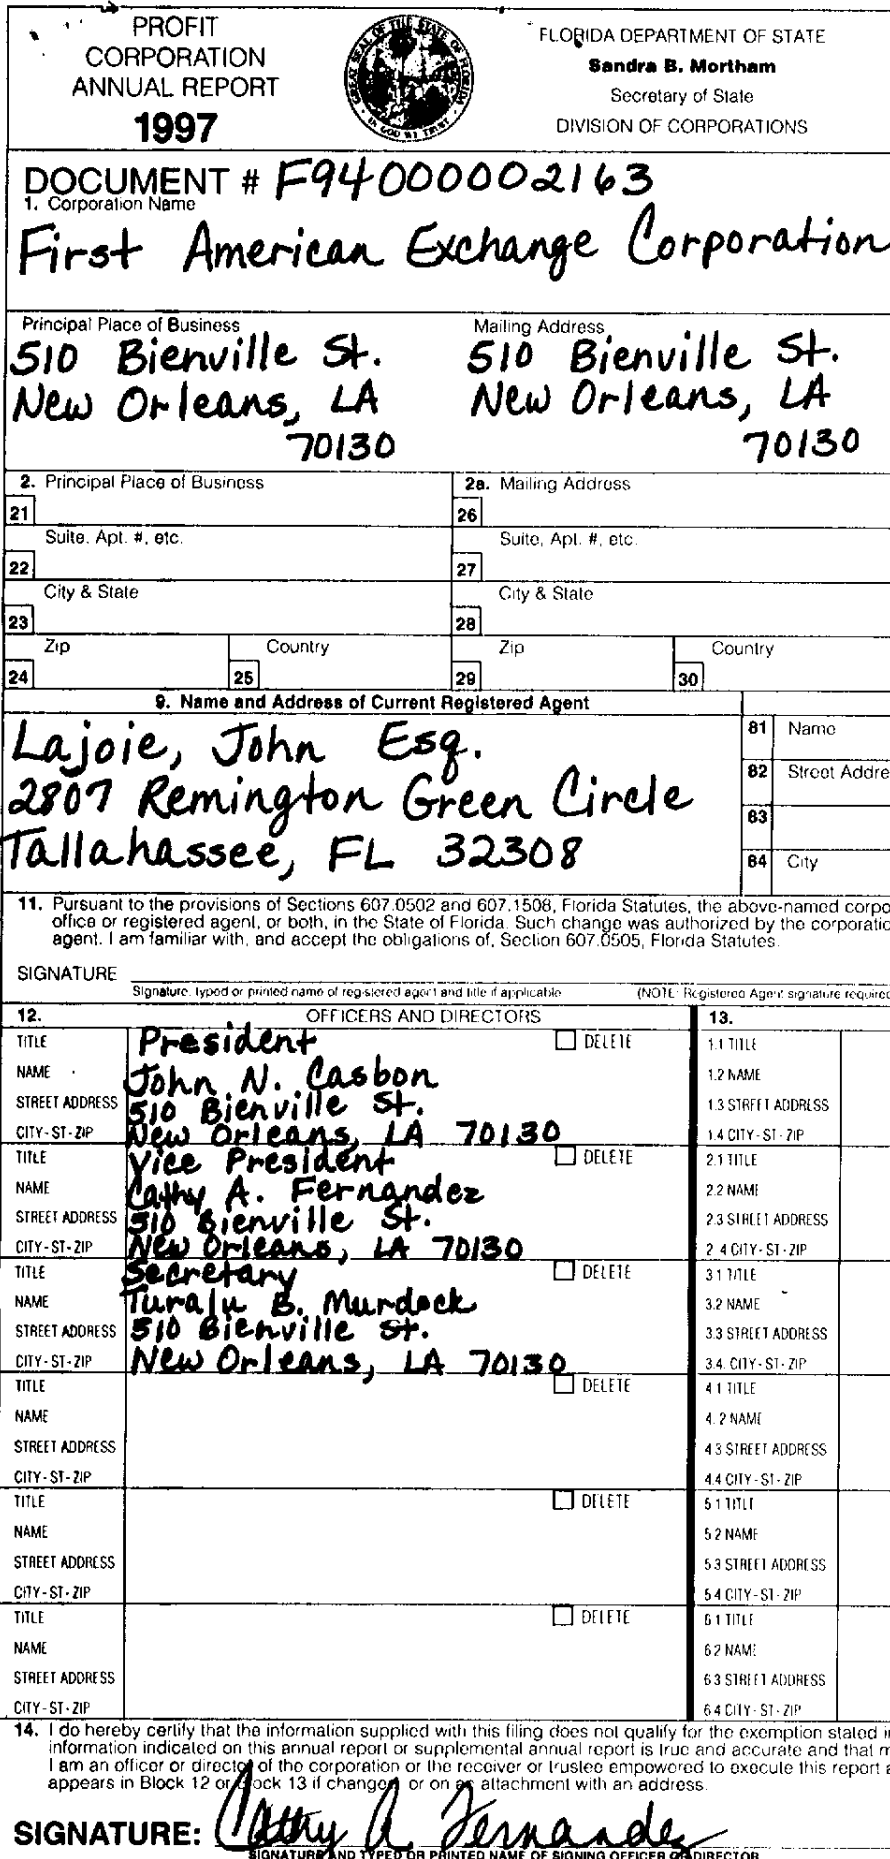 PROFIT
CORPORATION
ANNUAL REPORT
1997
GREAT SEAL OF THE STATE OF FLORIDA
IN GOD WE TRUST
FLORIDA DEPARTMENT OF STATE
Sandra B. Mortham
Secretary of State
DIVISION OF CORPORATIONS
DOCUMENT # F94000002163
1. Corporation Name
First American Exchange Corporation
Principal Place of Business
510 Bienville St.
New Orleans, LA
70130
Mailing Address
510 Bienville St.
New Orleans, LA
70130
2. Principal Place of Business
2a. Mailing Address
21
26
Suite, Apt. #, etc.
Suite, Apt. #, etc.
22
27
City & State
City & State
23
28
Zip
Country
Zip
Country
24
25
29
30
9. Name and Address of Current Registered Agent
Lajoie, John Esq.
2807 Remington Green Circle
Tallahassee, FL 32308
81 Name
82 Street Addre
83
84 City
11. Pursuant to the provisions of Sections 607.0502 and 607.1508, Florida Statutes, the above-named corpo
office or registered agent, or both, in the State of Florida. Such change was authorized by the corporatio
agent. I am familiar with, and accept the obligations of, Section 607.0505, Florida Statutes.
SIGNATURE
Signature, typed or printed name of registered agent and title if applicable
(NOTE: Registered Agent signature required
12. OFFICERS AND DIRECTORS
13.
TITLE President DELETE
NAME John N. Casbon
STREET ADDRESS 510 Bienville St.
CITY-ST-ZIP New Orleans, LA 70130
1.1 TITLE
1.2 NAME
1.3 STREET ADDRESS
1.4 CITY-ST-ZIP
TITLE Vice President DELETE
NAME Cathy A. Fernandez
STREET ADDRESS 510 Bienville St.
CITY-ST-ZIP New Orleans, LA 70130
2.1 TITLE
2.2 NAME
2.3 STREET ADDRESS
2.4 CITY-ST-ZIP
TITLE Secretary DELETE
NAME Turalu B. Murdock
STREET ADDRESS 510 Bienville St.
CITY-ST-ZIP New Orleans, LA 70130
3.1 TITLE
3.2 NAME
3.3 STREET ADDRESS
3.4. CITY-ST-ZIP
TITLE DELETE
NAME
STREET ADDRESS
CITY-ST-ZIP
4.1 TITLE
4.2 NAME
4.3 STREET ADDRESS
4.4 CITY-ST-ZIP
TITLE DELETE
NAME
STREET ADDRESS
CITY-ST-ZIP
5.1 TITLE
5.2 NAME
5.3 STREET ADDRESS
5.4 CITY-ST-ZIP
TITLE DELETE
NAME
STREET ADDRESS
CITY-ST-ZIP
6.1 TITLE
6.2 NAME
6.3 STREET ADDRESS
6.4 CITY-ST-ZIP
14. I do hereby certify that the information supplied with this filing does not qualify for the exemption stated in
information indicated on this annual report or supplemental annual report is true and accurate and that m
I am an officer or director of the corporation or the receiver or trustee empowered to execute this report a
appears in Block 12 or Block 13 if changed, or on an attachment with an address.
SIGNATURE: Cathy A Fernandez
SIGNATURE AND TYPED OR PRINTED NAME OF SIGNING OFFICER OR DIRECTOR